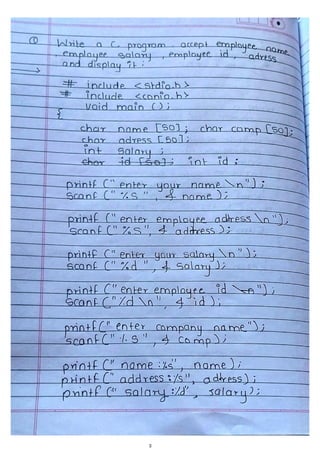 ① Write a C program accept employee name
employee salary , employee id , adress
and display it :
→
# include <stdio.h>
# include <conio.h>
void main ();
{
char name [50]; char comp [50];
char adress [50];
int salary ;
char id [50]; int id ;
printf (" enter your name \n");
scanf (" %s " , & name );
printf (" enter employee address \n");
scanf (" %s", & address );
printf (" enter your salary \n ");
scanf (" %d " , & salary );
printf (" enter employee id \n ");
scanf ("%d \n " , & id );
printf (" enter company name ");
scanf (" %s " , & comp );
printf (" name :%s" , name );
printf (" address :%s" , address);
printf (" salary :%d" , salary);